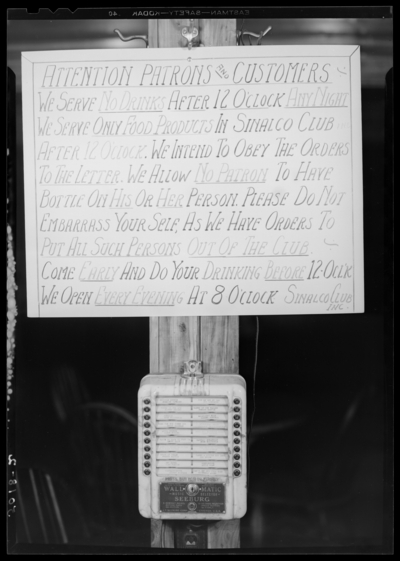 EASTMAN-SAFETY-KODAK 40
ATTENTION PATRONS AND CUSTOMERS
WE SERVE NO DRINKS AFTER 12 OCLOCK ANY NIGHT
WE SERVE ONLY FOOD PRODUCTS IN SINALCO CLUB
AFTER 12 OCLOCK. WE INTEND TO OBEY THE ORDERS
TO THE LETTER. WE ALLOW NO PATRON TO HAVE
BOTTLE ON HIS OR HER PERSON. PLEASE DO NOT
EMBARRASS YOUR SELF, AS WE HAVE ORDERS TO
PUT ALL SUCH PERSONS OUT OF THE CLUB.
COME EARLY AND DO YOUR DRINKING BEFORE 12-OCLK
WE OPEN EVERY EVENING AT 8 OCLOCK SINALCO CLUB
INC.
WALL-O-MATIC
SEEBURG